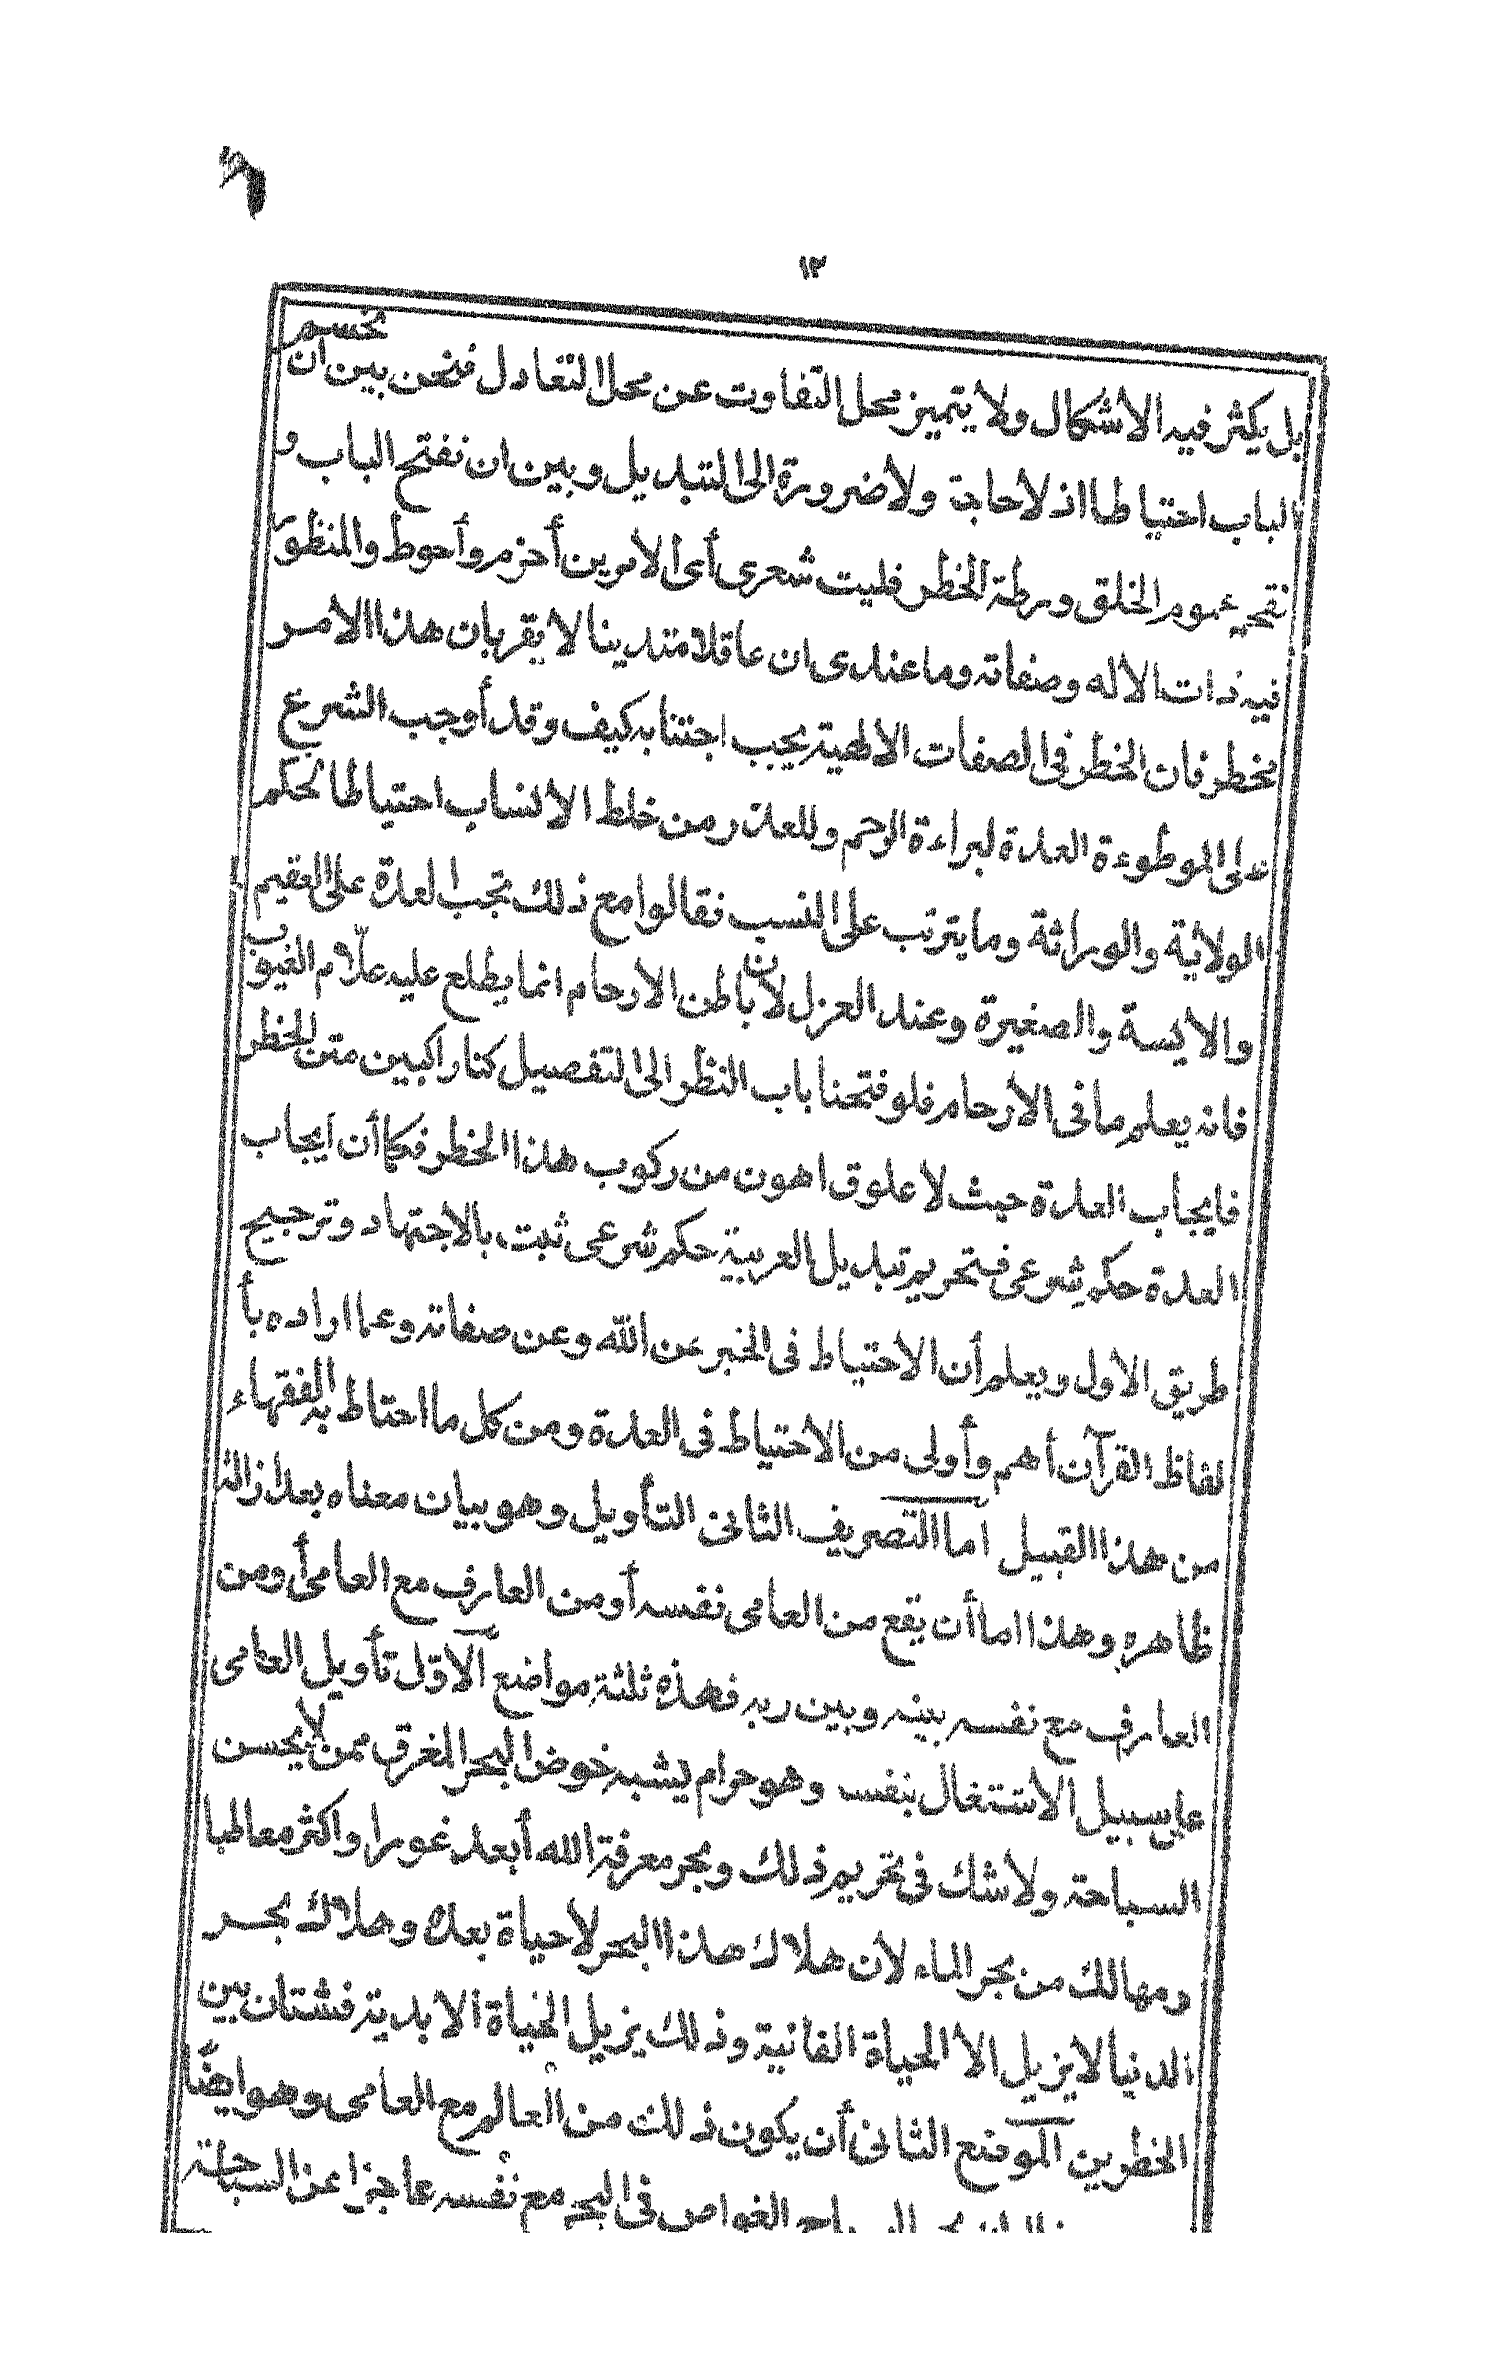 ١٢
بل يكثر فيه الأشكال ولا يتميز محل التفاوت عن محل التعادل فنحن بين ان نحسم
الباب احتياطا اذ لا حاجة ولا ضرورة الى التبديل وبين ان نفتح الباب و
نقحم عموم الخلق ورطة الخطر فليت شعرى أى الأمرين أحزم وأحوط والمنظور
فيه ذات الأله وصفاته وما عندى ان عاقلا متدينا لا يقر بان هذا الامر
مخطر فان الخطر فى الصفات الالهية يجب اجتنابه كيف وقد أوجب الشرع
على الموطوءة العدة لبراءة الرحم وللحذر من خلط الأنساب احتياطا لحكم
الولاية والوراثة وما يترتب على النسب فقالوا مع ذلك تجب العدة على العقيم
والأيسة والصغيرة وعند العزل لأن باطن الارحام انما يطلع عليه علّام الغيوب
فانه يعلم ما فى الأرحام فلو فتحنا باب النظر الى التفصيل كنا راكبين متن الخطر
فايجاب العدة حيث لا علوق اهون من ركوب هذا الخطر فكما أن ايجاب
العدة حكم شرعى فتحريم تبديل العربية حكم شرعى ثبت بالاجتهاد وترجيح
طريق الاول ويعلم أن الاحتياط فى الخبر عن الله وعن صفاته وعما اراده بأ
لفاظ القرآن أهم وأولى من الاحتياط فى العدة ومن كل ما احتاط به الفقهاء
من هذا القبيل اما التصريف الثانى التأويل وهو بيان معناه بعد ازالة
ظاهره وهذا اما أن يقع من العامى نفسه أو من العارف مع العامى أو من
العارف مع نفسه بينه وبين ربه فهذه ثلثة مواضع الاوّل تأويل العامى
على سبيل الأشتغال بنفسه وهو حرام يشبه خوض البحر المغرق ممن لا يحسن
السباحة ولا شك فى تحريم ذلك وبحر معرفة الله أبعد غورا واكثر معاطبا
ومهالك من بحر الماء لأن هلاك هذا البحر لا حياة بعده وهلاك بحر
الدنيا لا يزيل الا الحياة الفانية وذلك يزيل الحياة الابدية فشتان بين
الخطرين الموضع الثانى أن يكون ذلك من العالم مع العامى وهو ايضًا
السباح الغواص فى البحر مع نفسه عاجزا عن السباحة